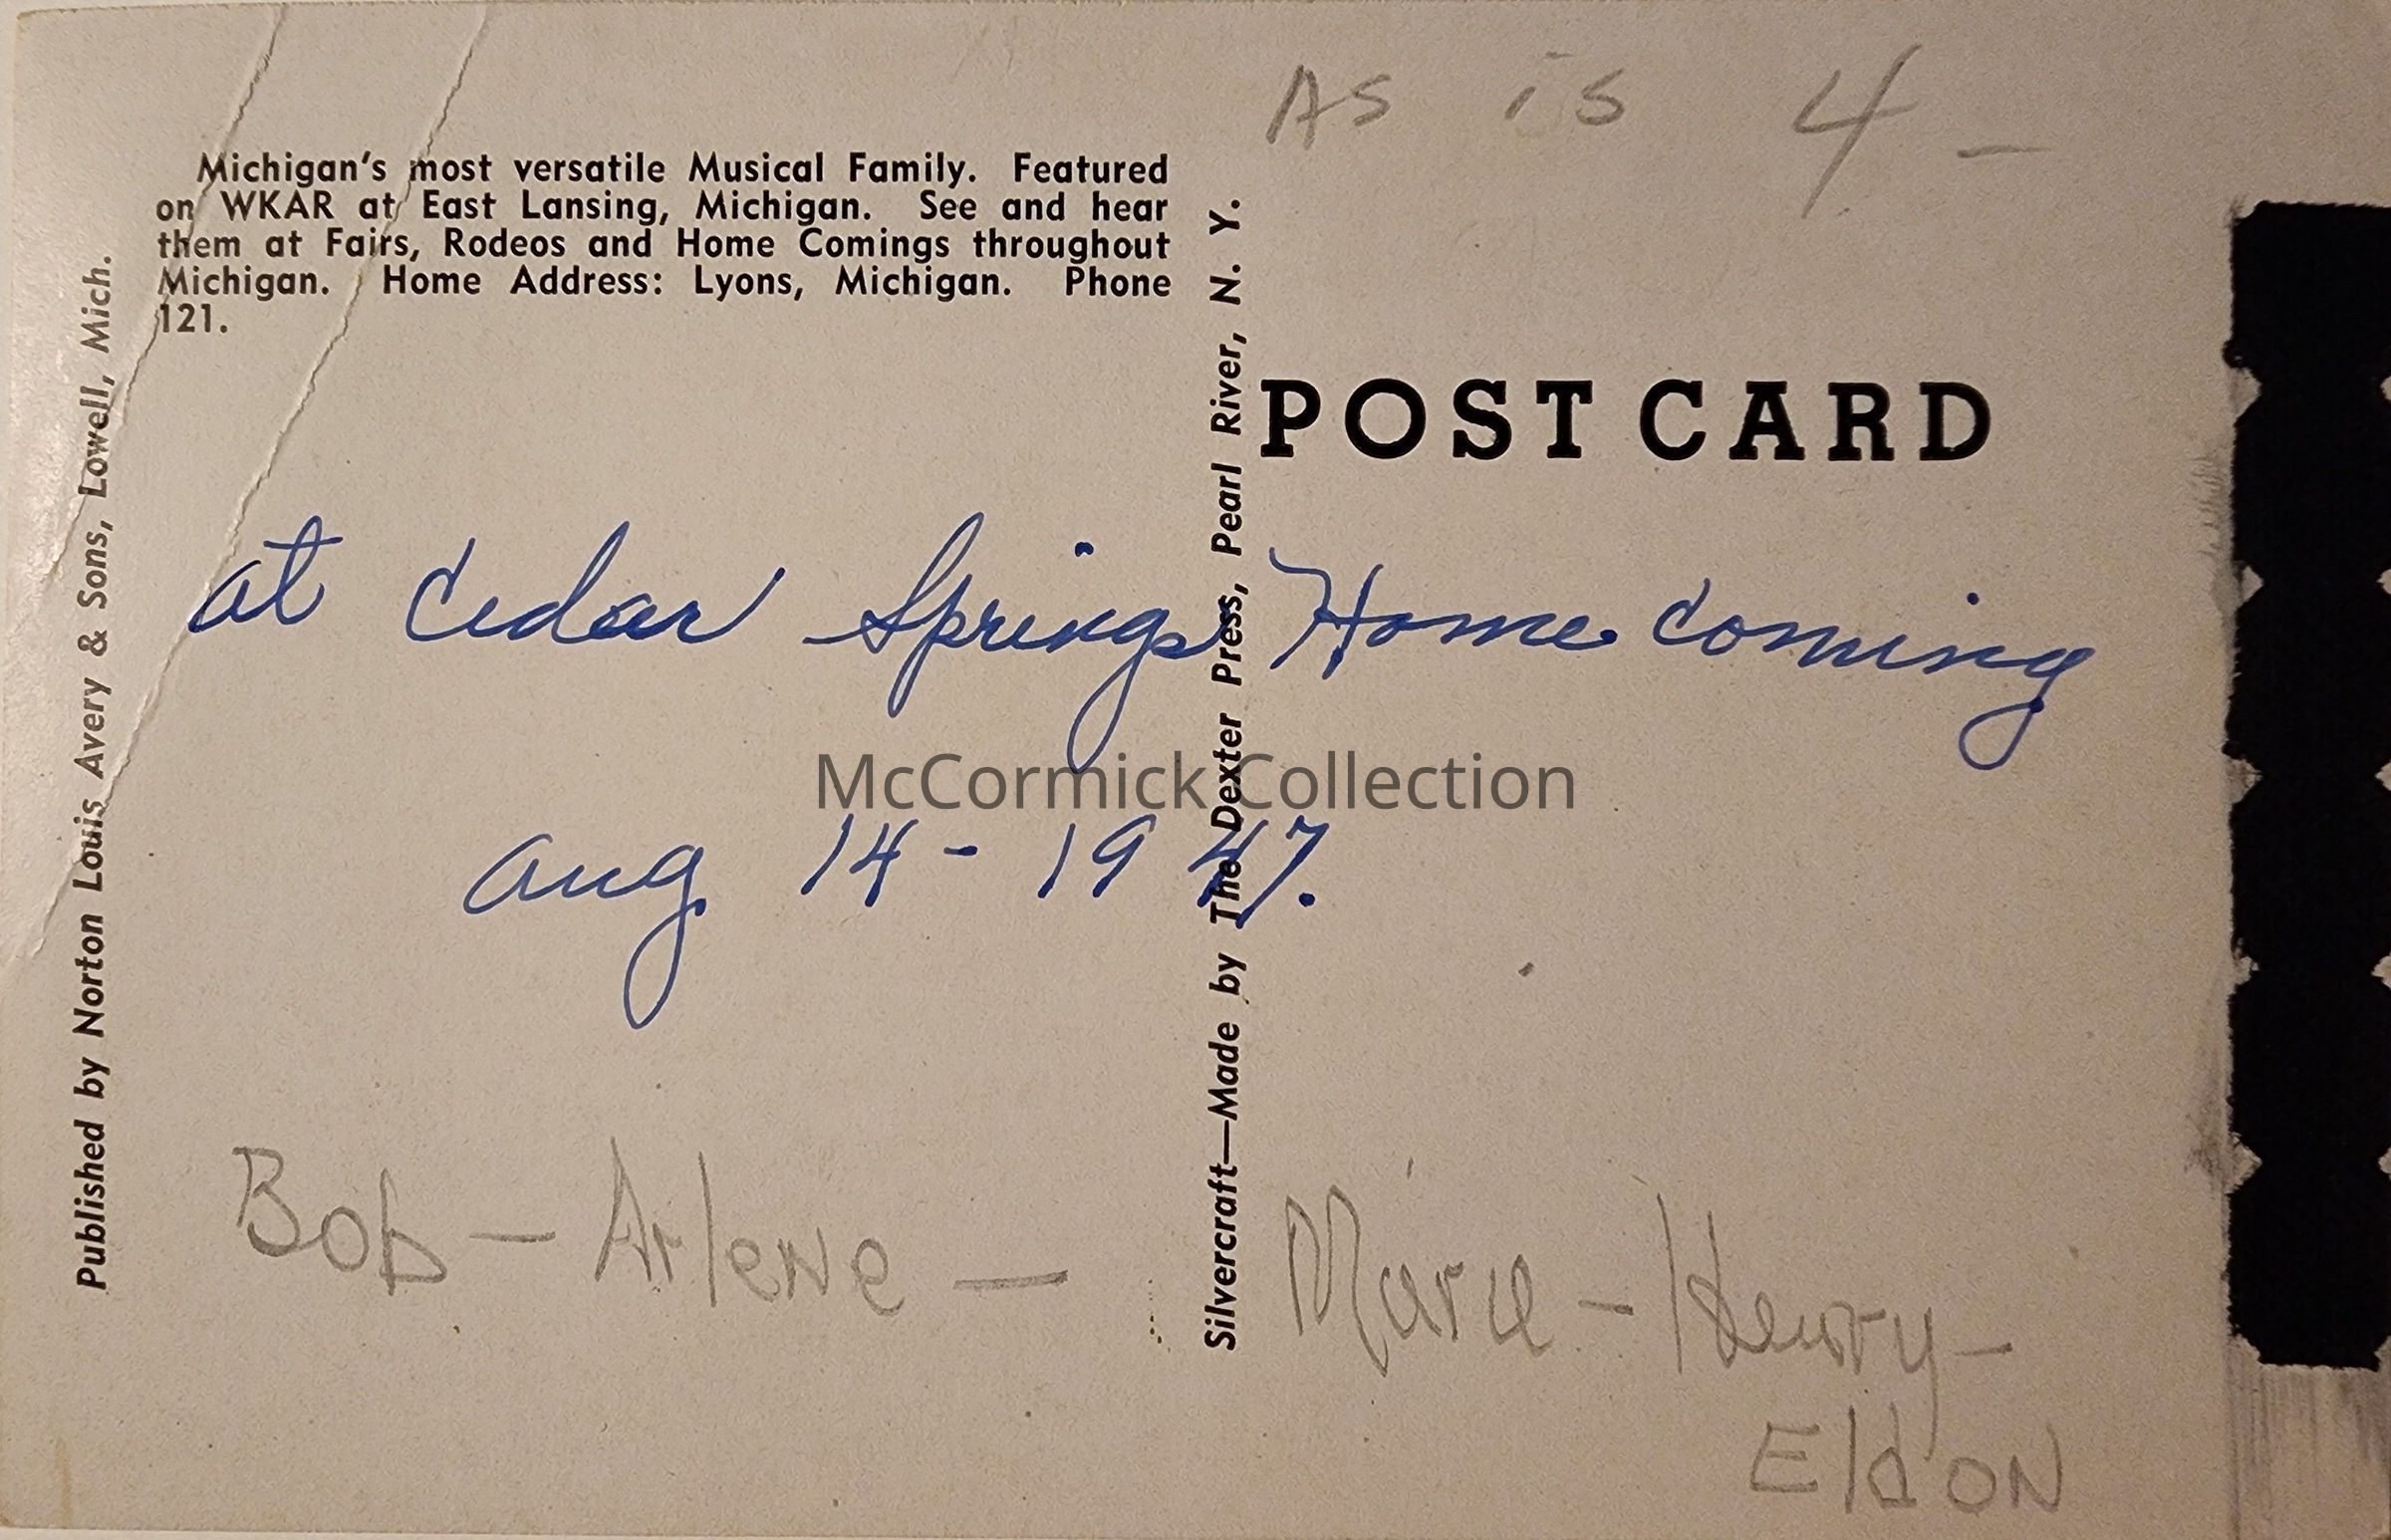 As is 4 —
Michigan's most versatile Musical Family. Featured
on WKAR at East Lansing, Michigan. See and hear
them at Fairs, Rodeos and Home Comings throughout
Michigan. Home Address: Lyons, Michigan. Phone
121.
Published by Norton Louis Avery & Sons, Lowell, Mich.
Silvercraft—Made by The Dexter Press, Pearl River, N. Y.
POST CARD
at Cedar Springs Home Coming
McCormick Collection
Aug 14 - 1947.
Bob — Arlene — Marie — Henry —
Eldon